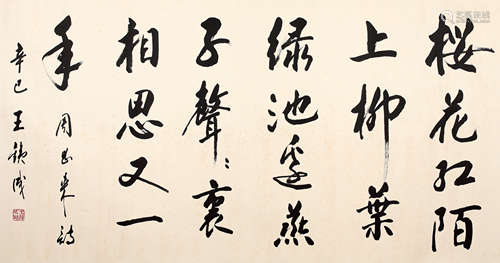 樱花红陌
上柳葉
绿池邊燕
子聲〻裏
相思又一
年 周恩来诗
辛巳 王铁成